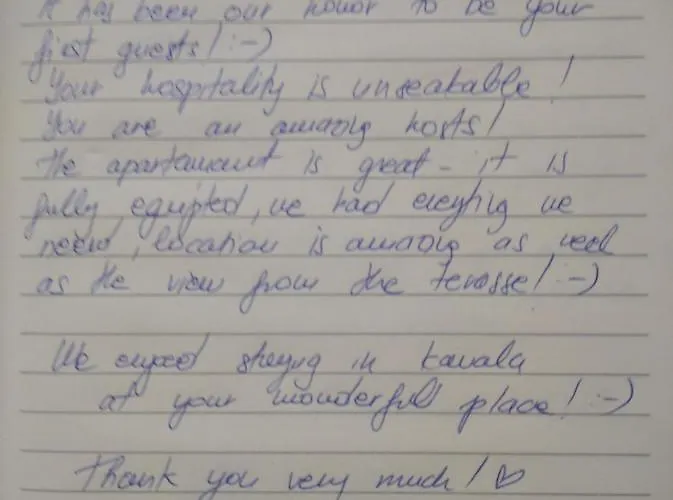 It has been our honor to be your
first guests! :-)
Your hospitality is unseakable!
You are an amazing hosts!
The apartamant is great - it is
fully equipted, we had everyhing we
need, location is amazing as well
as the view from the terasse! :-)
We enjoed staying in Kavala
at your wonderfull place! :-)
Thank you very much! ♡